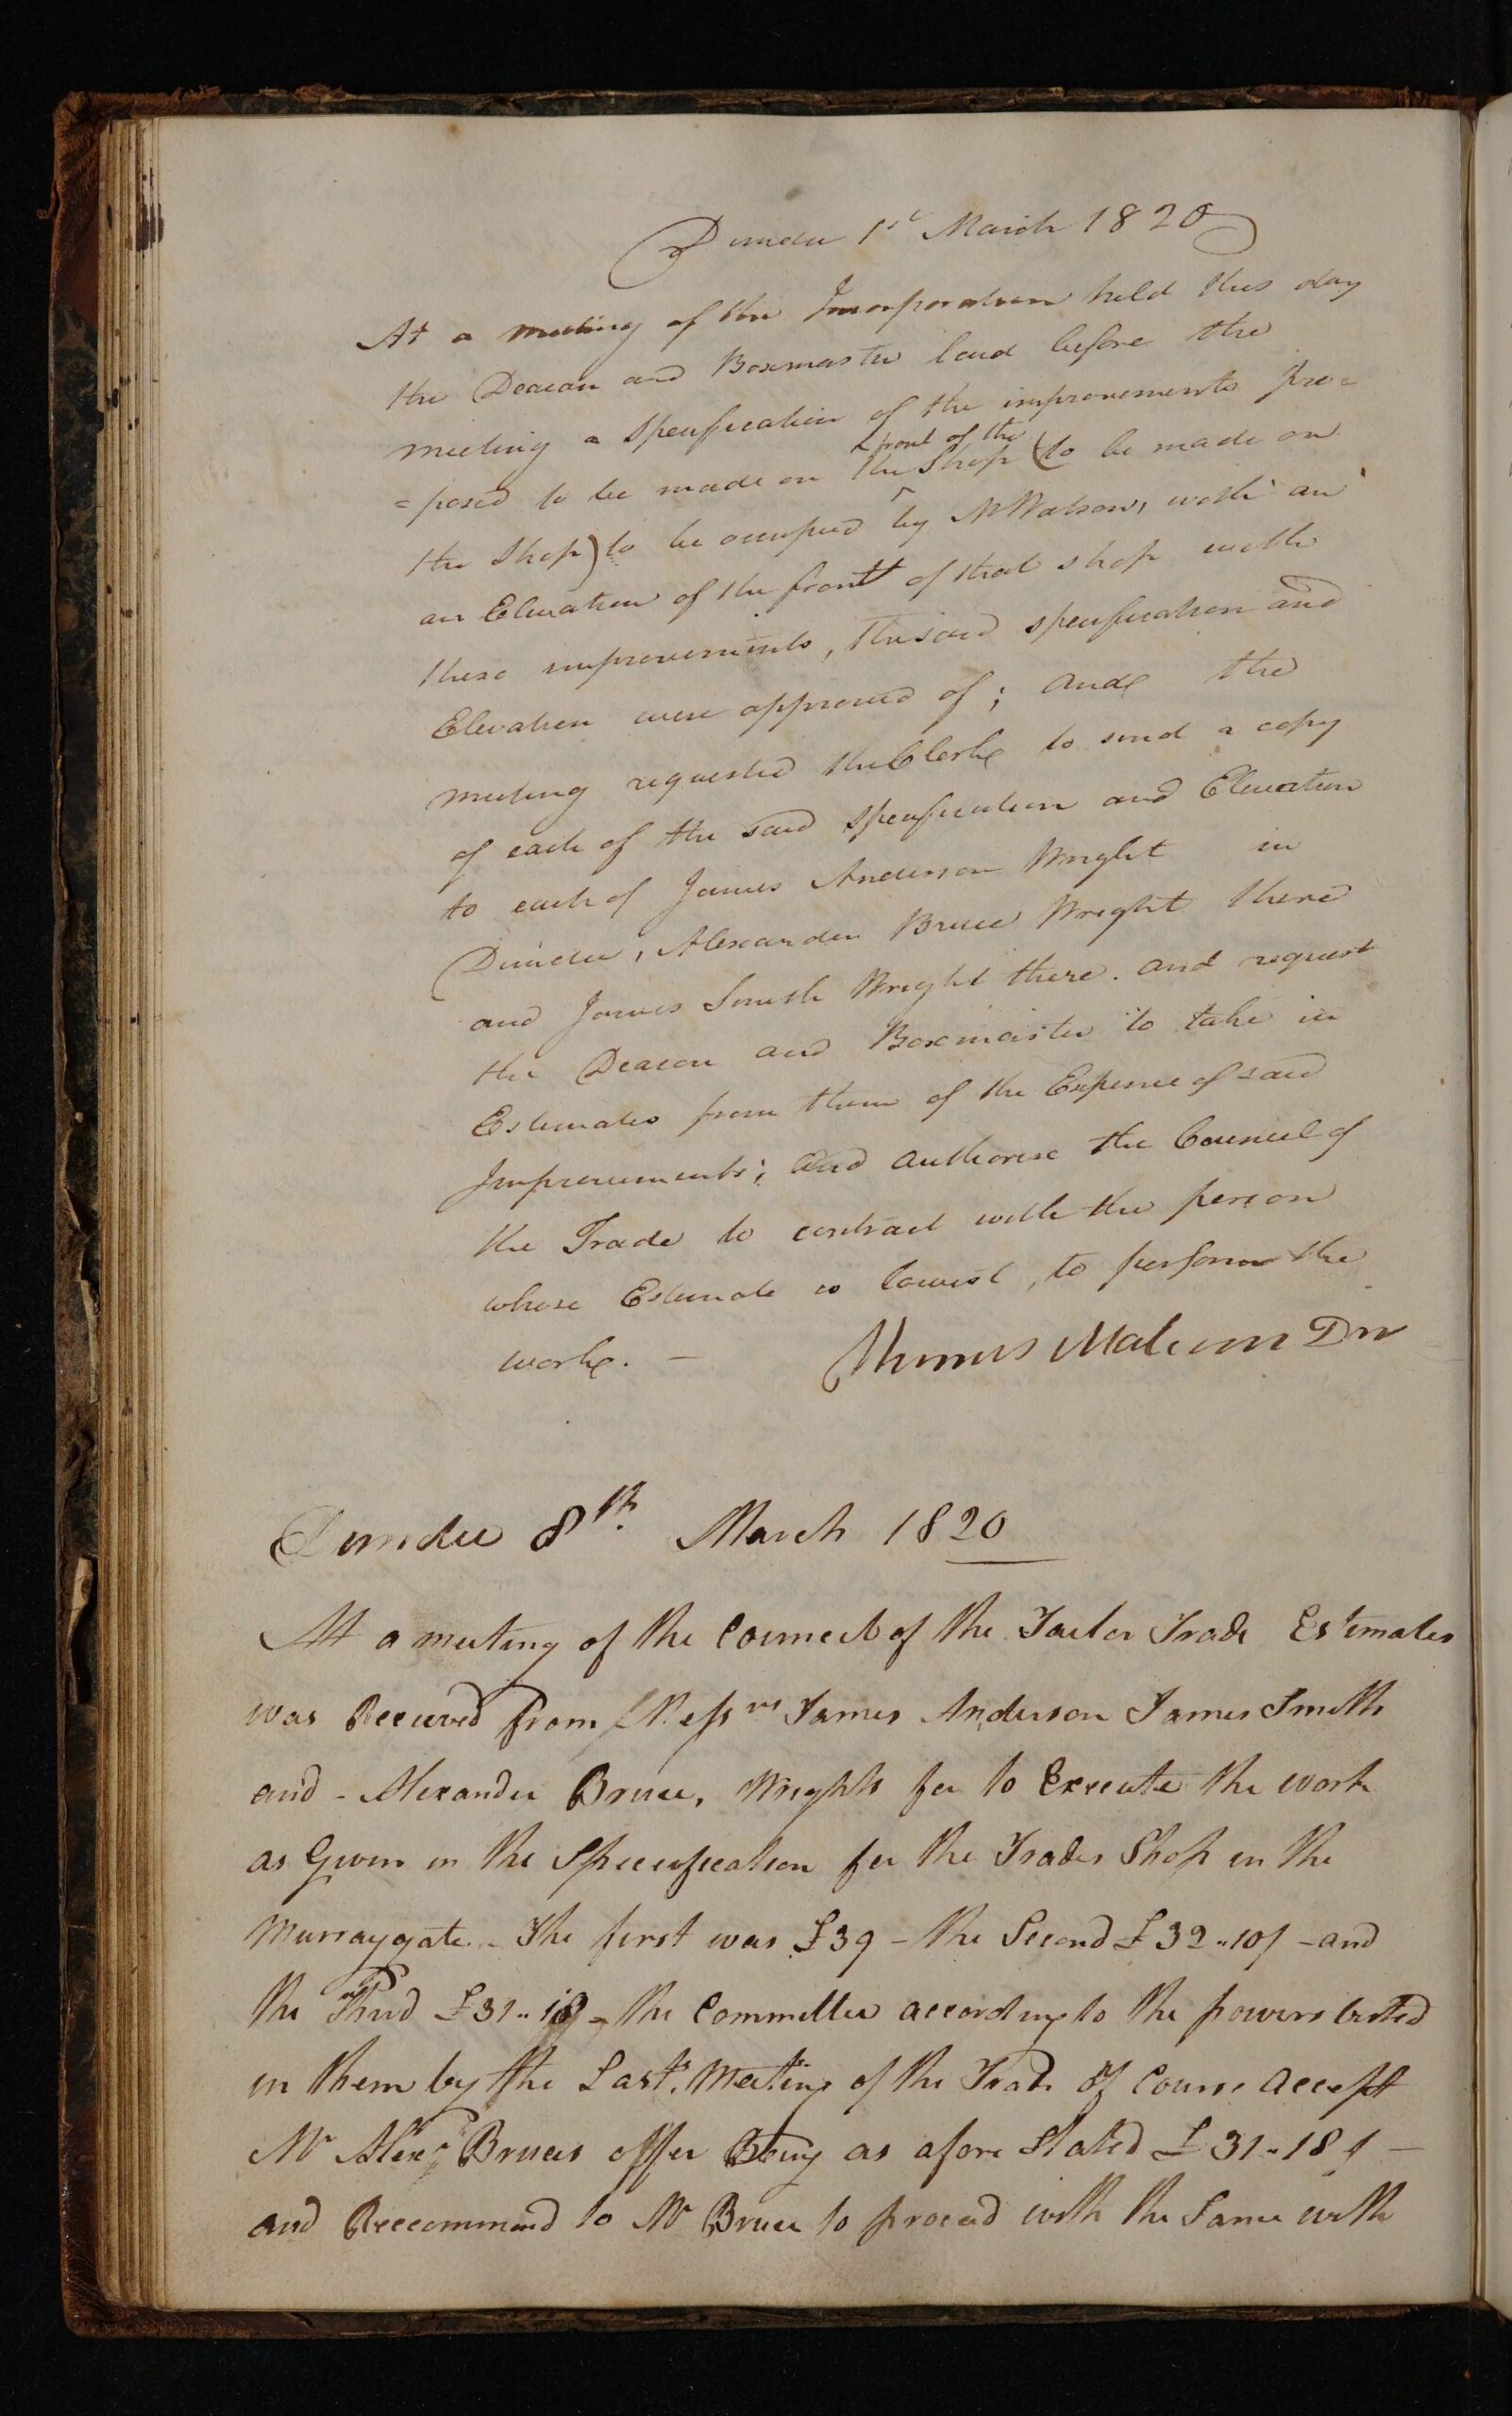 Dundee 1st March 1820
At a meeting of the Incorporation held this day
the Deacon and Boxmaster laid before the
meeting a Specification of the improvements pro=
front of the
=posed to be made on the Shop (to be made on
the Shop) to be occupied by Mr Watson, with an
an Elevation of the front of that shop with
these improvements, the said specification and
Elevation were approved of; and the
meeting requested the Clerk to send a copy
of each of the said specification and Elevation
to each of James Anderson Wright in
Dundee, Alexander Bruce Wright there
and James Smith Wright there. and request
the Deacon and Boxmaster to take in
Estimates from them of the Expence of said
Improvements; and authorise the Council of
the Trade to contract with the person
whose Estimate is lowest, to perform the
work. — Thomas Malcom Dn
Dundee 8th. March 1820
At a meeting of the Council of the Tailor Trade Estimates
was Received from Messrs James Anderson James Smith
and - Alexander Bruce, Wrights for to Execute the work
as Given in the Speecification for the Trades Shop in the
Murraygate - The first was £39 - the Second £32..10/ - and
the Third £31..18/ - the Committee according to the powers vested
in them by the Last. Meeting of the Trade Of Course accept
Mr Alexr Bruces offer Being as afore Stated £31..18/ —
and Reccommend to Mr Bruce to proceed with the Same with